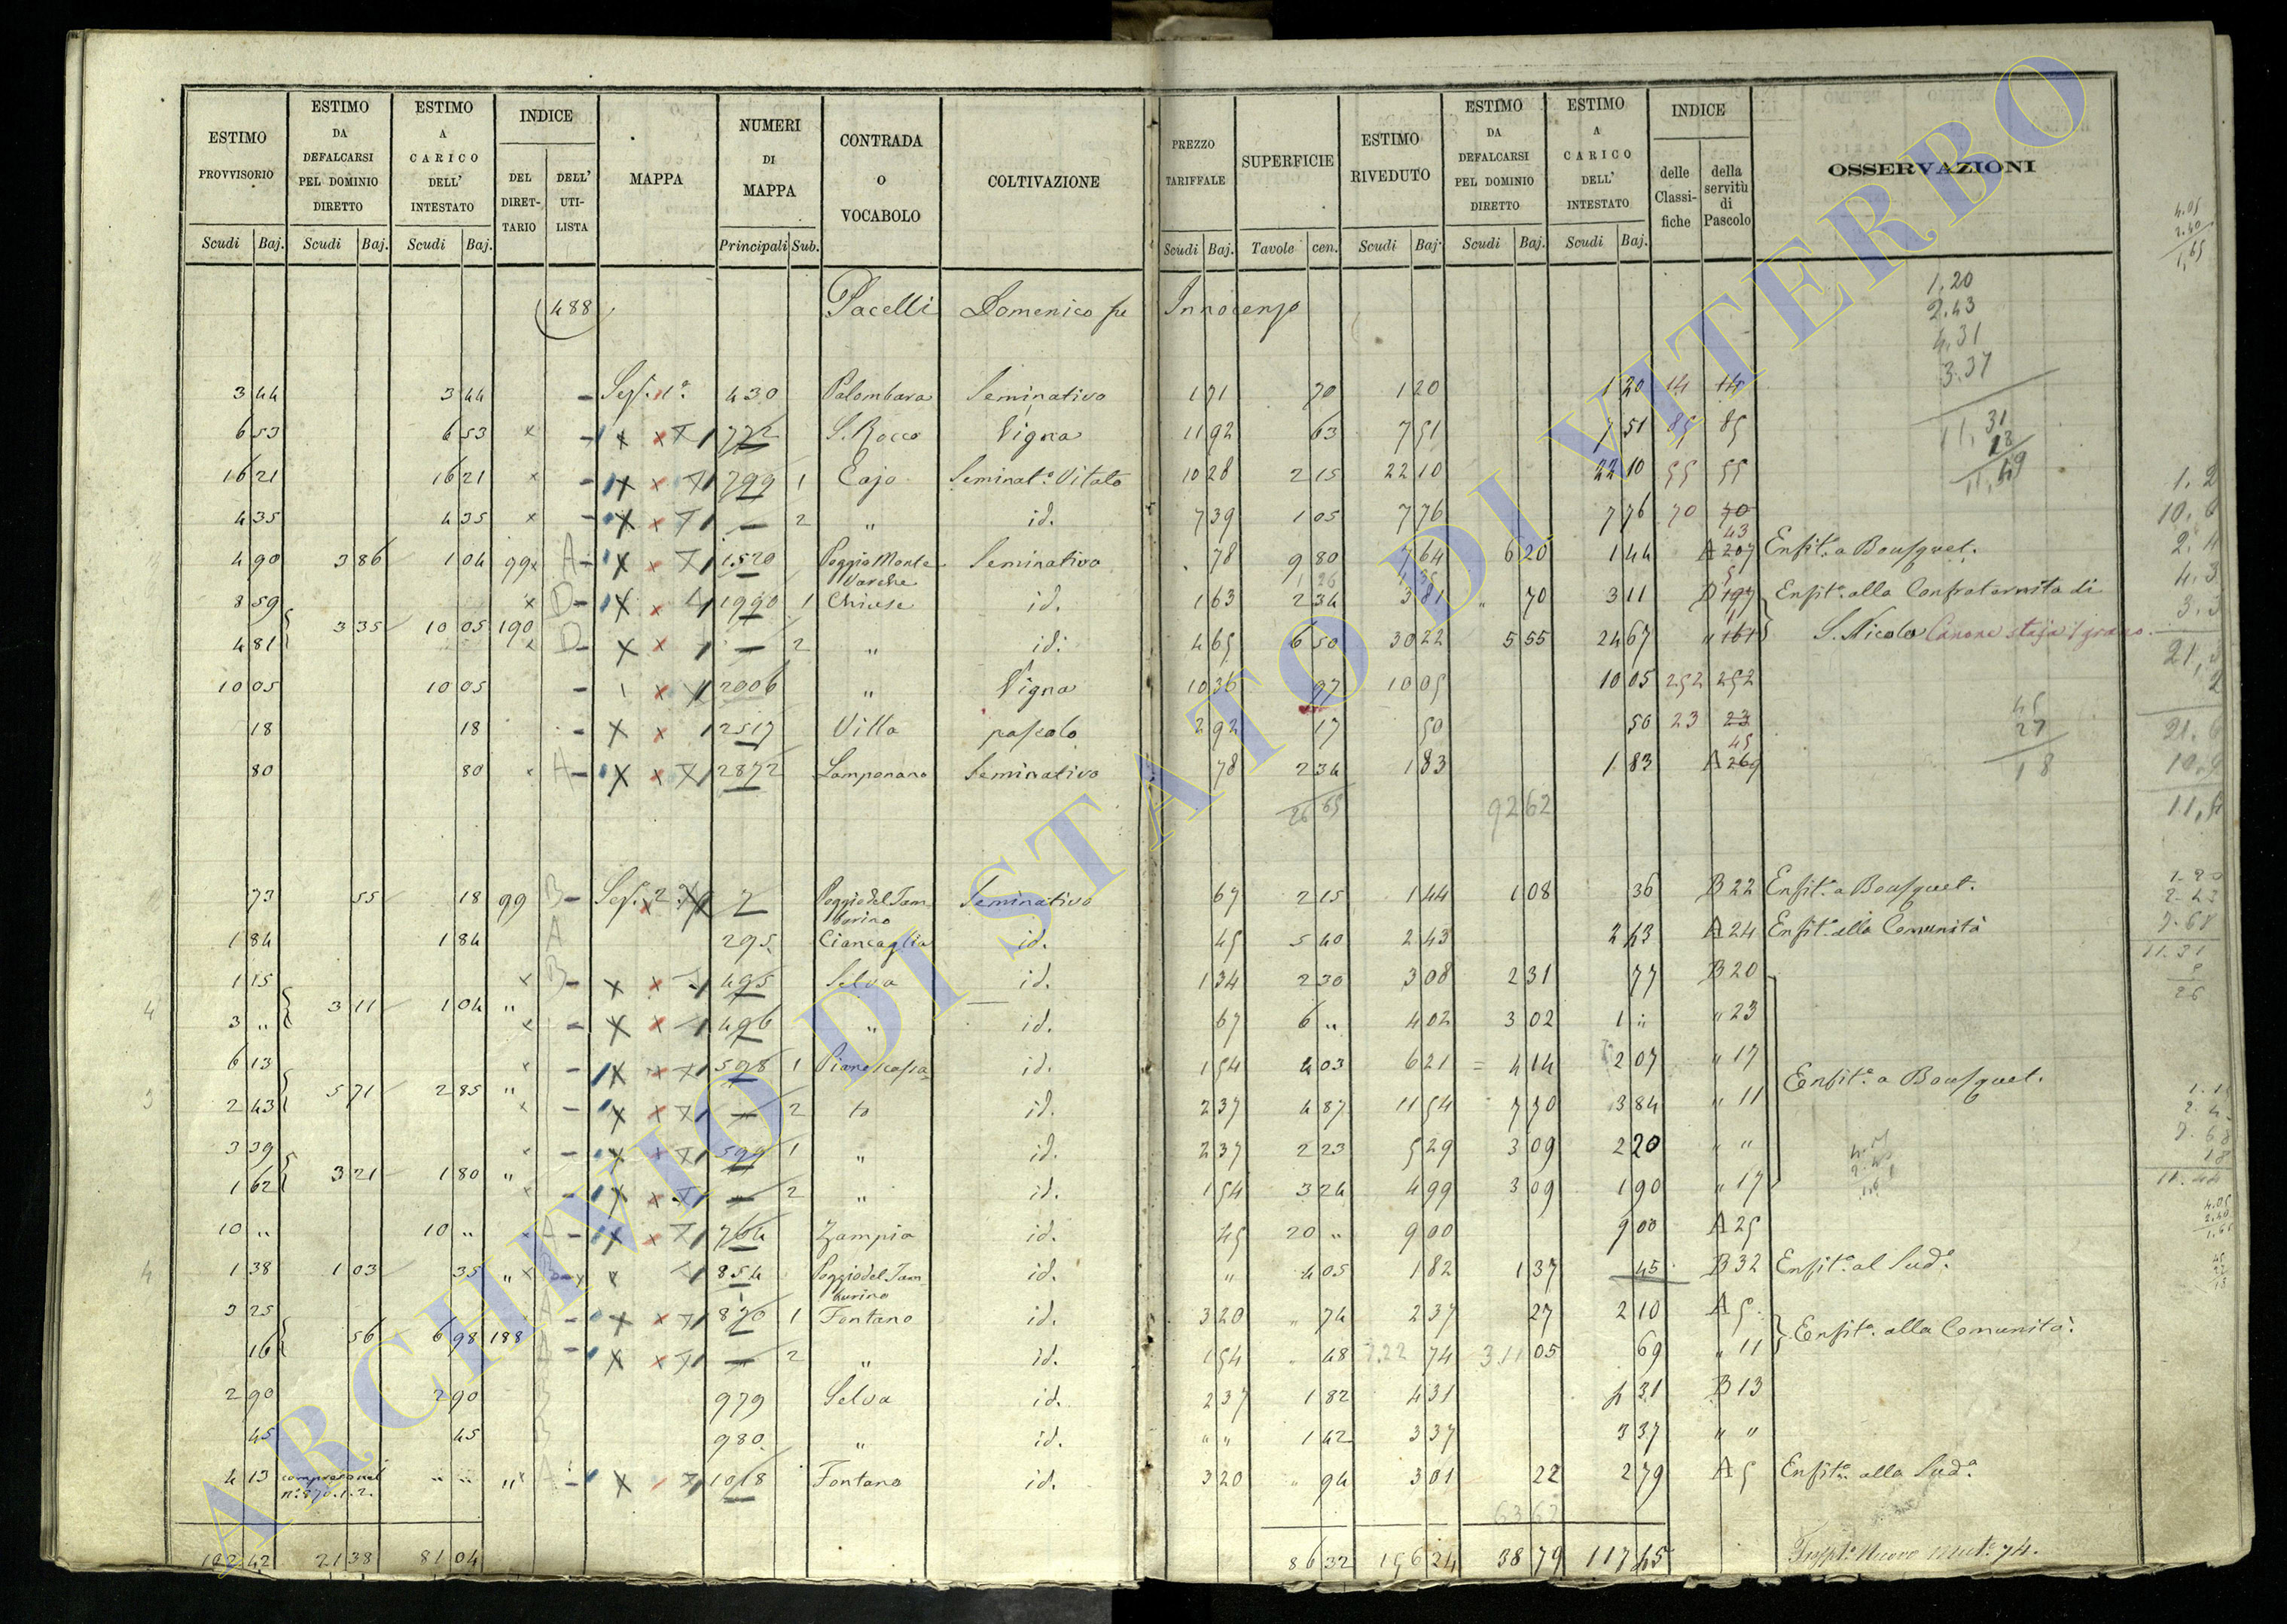 ESTIMO PROVVISORIO Scudi Baj. | ESTIMO DA DEFALCARSI PEL DOMINIO DIRETTO Scudi Baj. | ESTIMO A CARICO DELL' INTESTATO Scudi Baj. | INDICE DEL DIRET-TARIO | DELL' UTI-LISTA | MAPPA | NUMERI DI MAPPA Principali Sub. | CONTRADA O VOCABOLO | COLTIVAZIONE | PREZZO TARIFFALE Scudi Baj. | SUPERFICIE Tavole cen. | ESTIMO RIVEDUTO Scudi Baj. | ESTIMO DA DEFALCARSI PEL DOMINIO DIRETTO Scudi Baj. | ESTIMO A CARICO DELL' INTESTATO Scudi Baj. | INDICE delle Classi-fiche | della servitù di Pascolo | OSSERVAZIONI
488 Pacelli Domenico fu Innocenzo
3 44 3 44 Sez. 1ª 430 Palombara Seminativo 1 71 70 1 20 1 20 14 14
6 53 6 53 772 S. Rocco Vigna 11 92 63 7 51 7 51 85 85
16 21 16 21 799 1 Cajo Seminat.º Vitato 10 28 2 15 22 10 22 10 55 55
4 35 4 35 — 2 " id. 7 39 1 05 7 76 7 76 70 70
4 90 3 86 1 04 99 A 1520 Poggio Monte Varche Seminativo 78 9 80 7 64 6 20 1 44 A 207 43 Enfit.ª a Bousquet.
8 59 D 1990 1 Chiuse id. 1 63 2 34 3 81 " 70 3 11 D 197 Enfit.ª alla Confraternita di
4 81 3 35 10 05 190 D — 2 " id. 4 65 6 50 30 22 5 55 24 67 " 161 S. Nicola Canone staja 1 grano
10 05 10 05 2006 " Vigna 10 36 97 10 05 10 05 252 252
18 18 2517 Villa pascolo 2 92 17 50 50 23 23
80 80 A 2872 Lamponaro Seminativo 78 2 34 1 83 1 83 A 269 45
26 65 92 62
73 55 18 99 B Sez. 2ª 7 Poggio del Tamburino Seminativo 67 2 15 1 44 1 08 36 B 22 Enfit.ª a Bousquet.
1 84 1 84 A 295 Ciancaglia id. 45 5 40 2 43 2 43 A 24 Enfit.ª alla Comunità
1 15 B 495 Selva id. 1 34 2 30 3 08 2 31 77 B 20
3 " 3 11 1 04 " 496 " id. 67 6 " 4 02 3 02 1 " " 23
6 13 598 1 Piano id. 1 54 4 03 6 21 4 14 2 07 " 17
2 43 5 71 2 85 " — 2 to id. 2 37 4 87 11 54 7 70 3 84 " 11 Enfit.ª a Bousquet.
3 39 599 1 " id. 2 37 2 23 5 29 3 09 2 20 " "
1 62 3 21 1 80 " — 2 " id. 1 54 3 24 4 99 3 09 1 90 " 17
10 " 10 " A 764 Zampia id. 45 20 " 9 00 9 00 A 25
1 38 1 03 35 " B 854 Poggio del Tamburino id. " 4 05 1 82 1 37 45 B 32 Enfit.ª al Sud.º
3 25 A 870 1 Fontano id. 3 20 " 74 2 37 27 2 10 A 5
16 56 6 98 188 A — 2 " id. 1 54 " 48 74 05 69 " 11 Enfit.ª alla Comunità
2 90 2 90 B 979 Selva id. 2 37 1 82 4 31 4 31 B 13
45 45 B 980 " id. " " 1 42 3 37 3 37 " "
4 13 compreso nel nº 870.1.2. " " " A 1018 Fontano id. 3 20 " 94 3 01 22 2 79 A 5 Enfit.ª alla Sud.ª
63 62
102 42 21 38 81 04 86 32 156 24 38 79 117 45
1,20
2.43
4,31
3.37
11,31
18
11,49
45
27
18
4.05
2.40
1,65
ARCHIVIO DI STATO DI VITERBO